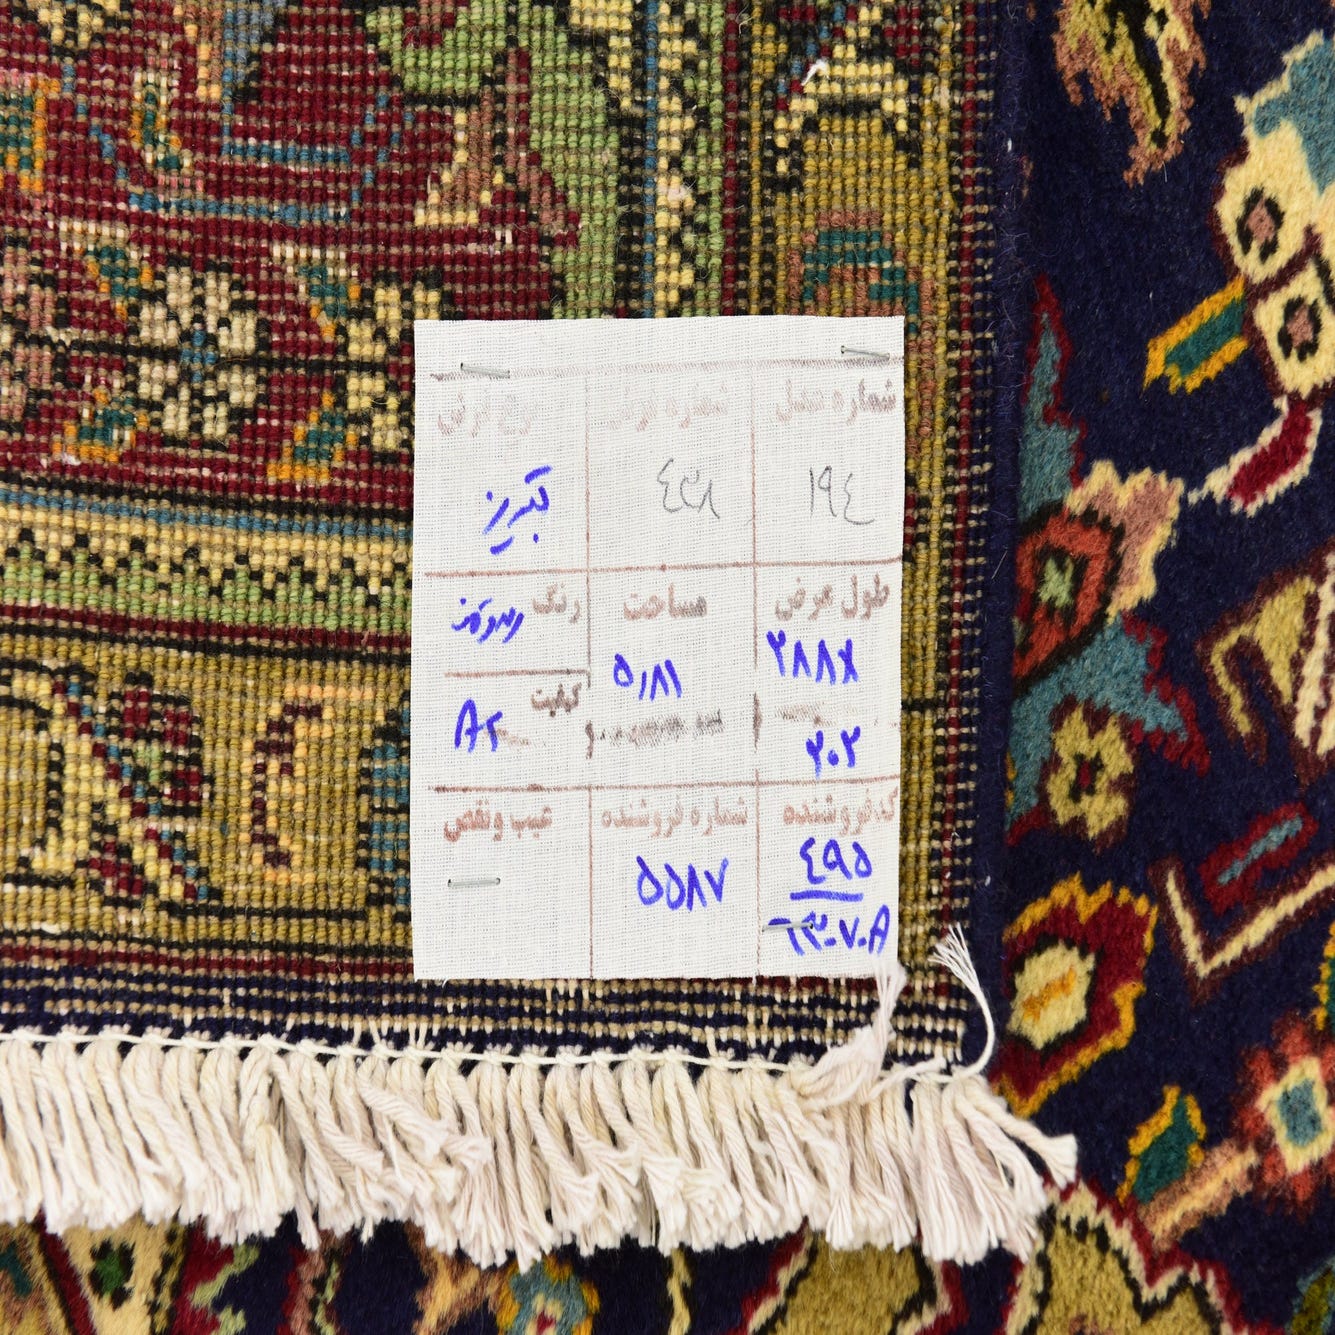 شماره عدل
شماره فرش
نوع فرش
۱۹٤
٤۳۸
تبریز
طول عرض
مساحت
رنگ
۲۸۸x
۵٫۸۱
۲۰۲
کیفیت
A۲
ک.فروشنده
شماره فروشنده
عیب و نقص
٤۹۵
۵۵۸۷